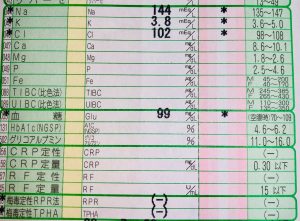 * Na 144 mEq/L * 135~147
* K 3.8 mEq/L * 3.6~5.0
* Cl 102 mEq/L * 98~108
Ca mg/dL 8.6~10.1
Mg mg/dL 1.8~2.6
P mg/dL 2.5~4.6
Fe
TIBC(比色法) TIBC
UIBC(比色法) UIBC
* 血糖 Glu 99 * (空腹時)70~109
131 HbA1c(NGSP) A1C (NGSP) % 4.6~6.2
グリコアルブミン % 11.0~16.0
CRP定性 CRP (−)
CRP定量 CRP 0.30 以下
RF定性 RF (−)
RF定量 RF 15 以下
* 梅毒定性RPR法 RPR (−) (−)
* 梅毒定性TPHA TPHA (−) (−)